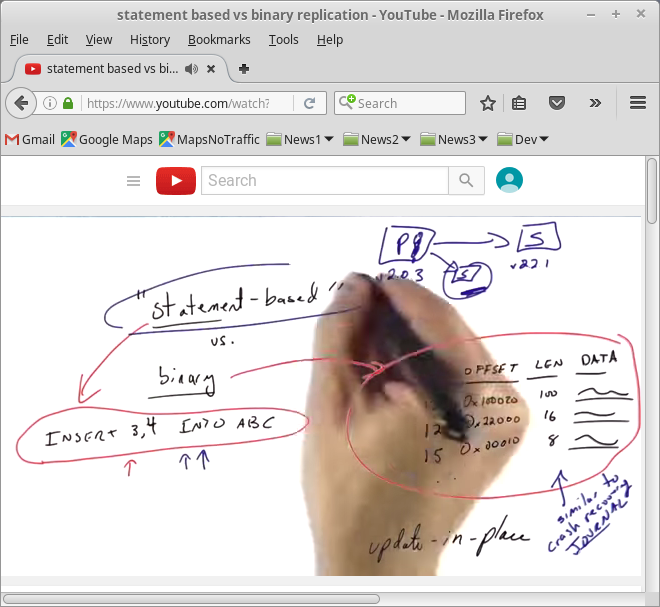 statement based vs binary replication - YouTube - Mozilla Firefox
File Edit View History Bookmarks Tools Help
statement based vs bi...
https://www.youtube.com/watch?
Search
Gmail Google Maps MapsNoTraffic News1 News2 News3 Dev
Search
S
S
v2.0.3
v2.2.1
"statement-based"
vs.
binary
INSERT 3,4 INTO ABC
OFFSET LEN DATA
100
12 0x22000 16
15 0x30010 8
similar to
crash recovery
JOURNAL
update-in-place